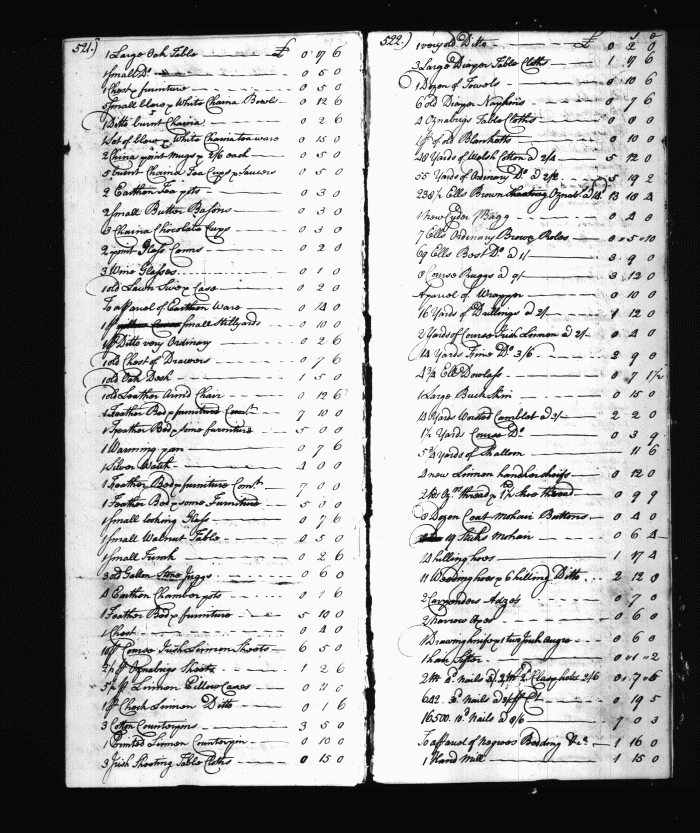 521.)
1 Large Oak Table £ 0 17 6
1 Small Do. 0 5 0
1 Chest & furniture 0 5 0
5 Small blew & White Chaina Bowls 0 12 6
1 Ditto burnt Chaina 0 2 6
1 Set of blew & White Chaina tea ware 0 15 0
2 China point Mugs & 2/6 each 0 5 0
5 burnt Chaina Tea Cups & saucers 0 5 0
2 Earthen Tea pots 0 3 0
2 Small Butter Basons 0 3 0
3 Chaina Chocolate Cups 0 3 0
2 point Glass Canns 0 2 0
3 Wine Glasses 0 1 0
1 old Lawn Sive & Case 0 2 0
To a parcel of Earthen Ware 0 14 0
1 pr Small Stillyards 0 10 0
1 pr Ditto very Ordinary 0 2 6
1 old Chest of Drawers 0 7 6
1 old Oak Desk 1 5 0
1 old Leather Armd Chair 0 12 6
1 Feather Bed & furniture Cont. 7 10 0
1 Feather Bed & some furniture 5 00 0
1 Warming pan 0 7 6
1 Silver Watch 4 00 0
1 Feather Bed & furniture Cont. 7 0 0
1 Feather Bed & some Furniture 5 0 0
1 Small looking Glass 0 7 6
1 Small Walnut Table 0 5 0
1 Small Trunk 0 2 6
3 old Gallon Stone Juggs 0 6 0
4 Earthen Chamber pots 0 1 6
1 Feather Bed & furniture 5 10 0
1 Chest 0 4 0
10 pr Course Irish Linnen Sheets 6 5 0
2½ pr Oznabrigs Sheets 1 2 6
5½ pr Linnen Pillow Cases 0 11 0
1 pr Check Linnen Ditto 0 1 6
3 Cotton Counterpins 3 5 0
1 Printed Linnen Counterpin 0 10 0
3 Irish Sheeting Table Cloths 0 15 0
522.)
1 very old Ditto £ 0 2 0
3 Large Diaper Table Cloths 1 17 6
1 Dozen of Towels 0 10 6
6 old Diaper Napkins 0 7 6
4 Oznabrigs Table Cloths 0 8 0
1 pr of old Blanketts 0 10 0
48 Yards of Welsh Cotton a 2/4 5 12 0
55 Yards of Ordinary Do. a 2/2 5 19 2
238½ Ells Brown Sheeting Oznabs a 14d. 13 18 4
1 new Cyder Bagg 0 4 0
7 Ells Ordinary Brown Roles 0 5 10
69 Ells Best Do. a 1/ 3 9 0
8 Course Ruggs a 9/ 3 12 0
A parcel of Wrapper 0 10 0
16 Yards of Drullings a 2/ 1 12 0
2 Yards of Course Irish Linnen a 2/ 0 4 0
14 Yards Fine Do. 3/6 2 9 0
4¾ Ells Dowlass 0 7 1½
1 Large Buck Skin 0 15 0
14 Yards Worsted Camblet a 3/ 2 2 0
1½ Yards Course Do. 0 3 9
5¾ Yards of Shalloon 11 6
4 new Linnen handkerchiefs 0 12 0
0 9 9
8 Dozen Coat Mohair Buttons 0 4 0
19 Sticks Mohair 0 6 4
14 hilling hoes 1 17 4
11 Weeding hoes & 6 hilling Ditto 2 12 0
2 Carpenders Adzes 0 7 0
2 narrow Axes 0 6 0
1 Drawing knife & two Inch Augre 0 6 0
1 hair Sifter 0 1 2
0 7 6
0 19 5
16500. 10d. Nails a 8/6 7 0 3
To a parcel of Negroes Bedding &c. 1 16 0
1 Hand Mill 1 15 0